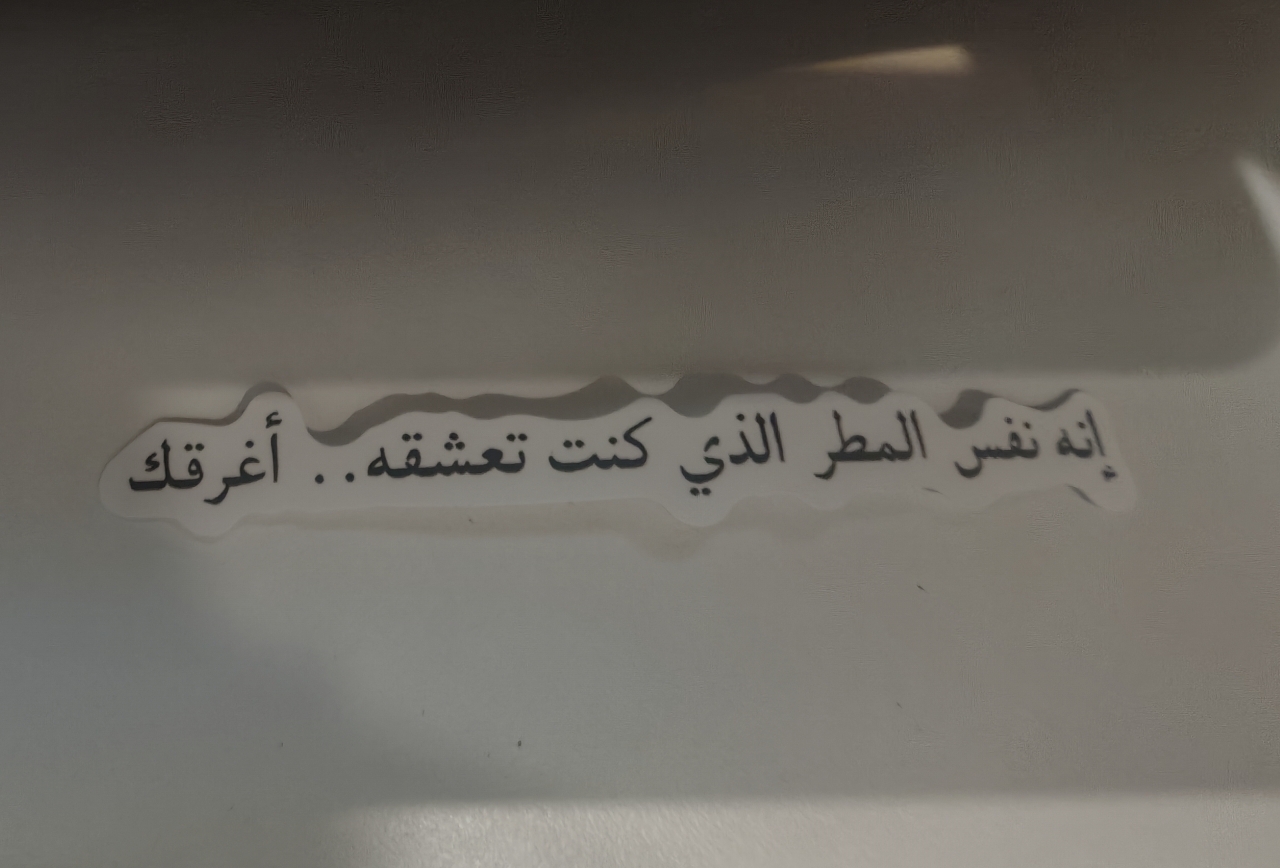 إنه نفس المطر الذي كنت تعشقه.. أغرقك